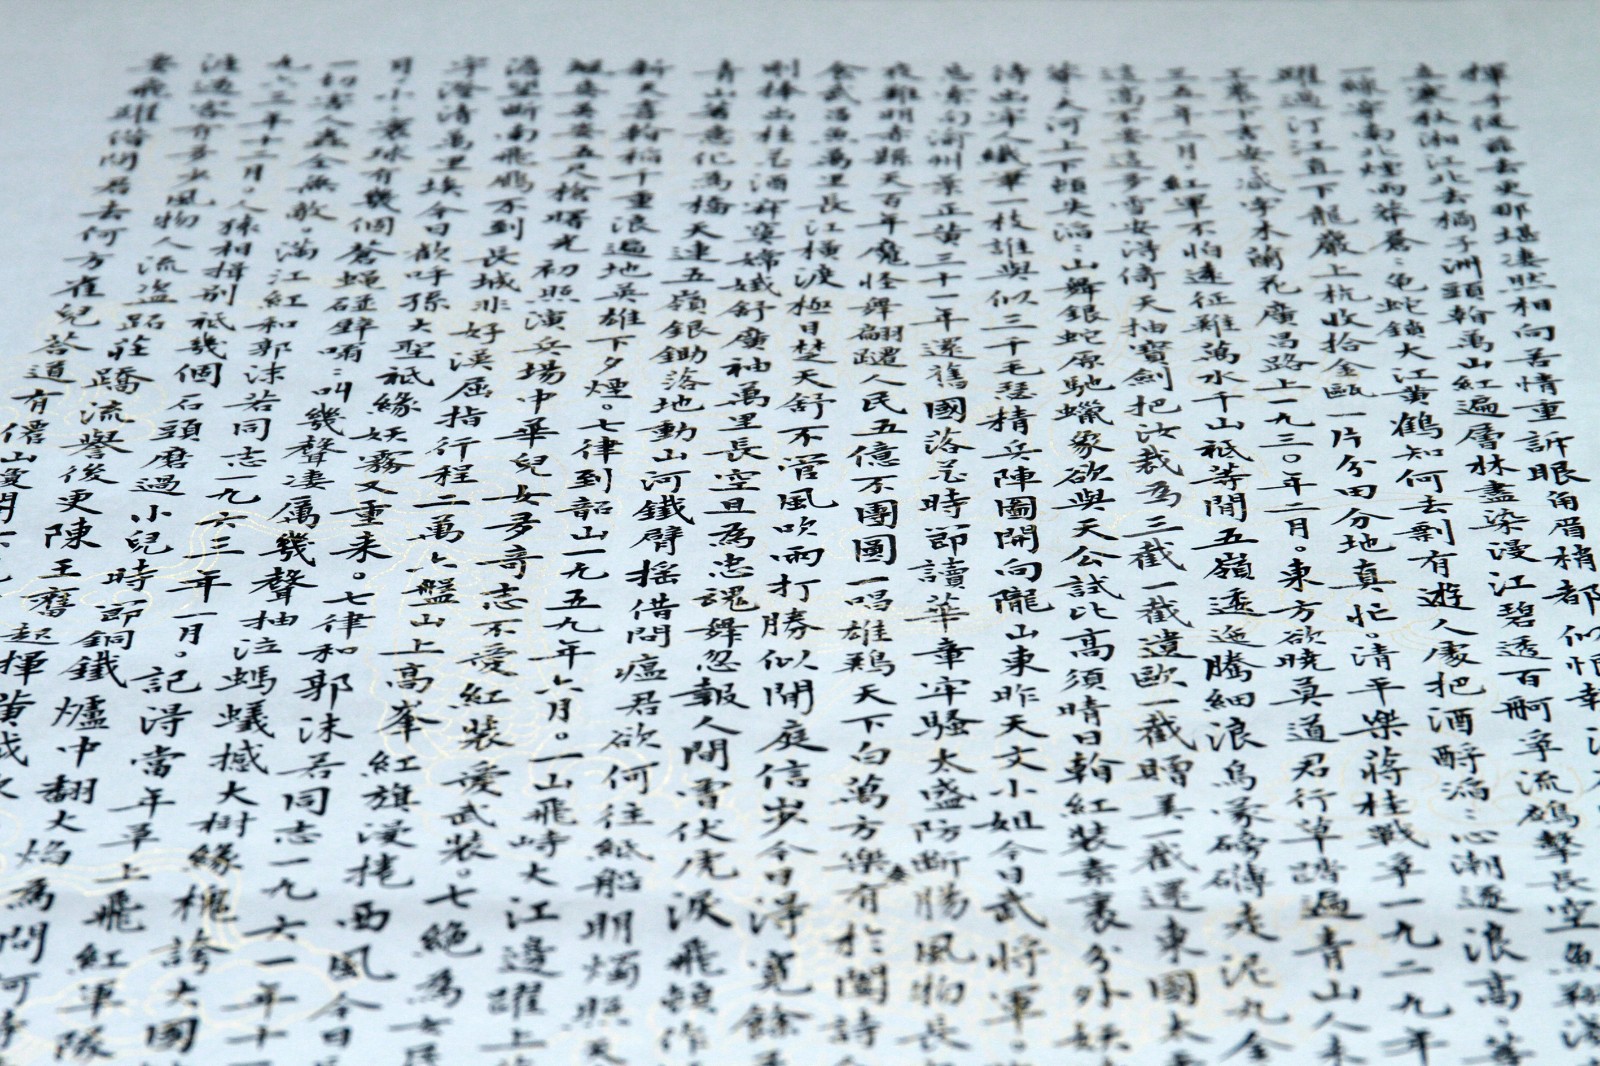 揮手從茲去更那堪凄然相向苦情重訴眼角眉梢都似恨
立寒秋湘江北去橘子洲頭看萬山紅遍層林盡染漫江碧透百舸爭流鷹擊長空魚翔淺
一線穿南北煙雨莽蒼:龜蛇鎖大江黃鶴知何去剩有遊人處把酒酹滔:心潮逐浪高:等
躍過汀江直下龍巖上杭收拾金甌一片分田分地真忙。清平樂蔣桂戰爭一九二九年
工農下吉安減字木蘭花廣昌路上一九三〇年二月。東方欲曉莫道君行草踏遍青山人未
三五年二月。紅軍不怕遠征難萬水千山祇等閒五嶺逶迤騰細浪烏蒙磅礴走泥九金
這高不要這多雪安得倚天抽寶劍把汝裁為三截一截遺歐一截贈美一截還東國太
莽:大河上下頓失滔:山舞銀蛇原馳蠟象欲與天公試比高須晴日看紅裝素裹分外妖
待出牢人纖筆一枝誰與似三千毛瑟精兵陣圖開向隴山東昨天文小姐今日武將軍。
忘索句渝州葉正黃三十一年還舊國落花時節讀華章牢騷太盛防斷腸風物長
夜難明赤縣天百年魔怪舞翩躚人民五億不團圓一唱雄鷄天下白萬方樂有於闐詩
食武昌魚萬里長江橫渡極目楚天舒不管風吹雨打勝似閒庭信步今日得寬餘
剛捧出桂花酒寂寞嫦娥舒廣袖萬里長空且為忠魂舞忽報人間曾伏虎淚飛頓作
青山著意化為橋天連五嶺銀鋤落地動山河鐵臂搖借問瘟君欲何往紙船明燭照天
新天喜看稻千重浪遍地英雄下夕煙。七律到韶山一九五九年六月。一山飛峙大江邊躍上
颯爽英姿五尺槍曙光初照演兵場中華兒女多奇志不愛紅裝愛武裝。七絕為女民
望斷南飛鴈不到長城非好漢屈指行程二萬六盤山上高峯紅旗漫捲西風今日
宇澄清萬里埃今日歡呼孫大聖祇緣妖霧又重来。七律和郭沫若同志一九六一年十
月小寰球有幾個蒼蠅碰壁嗡:叫幾聲凄厲幾聲抽泣螞蟻撼大樹緣槐誇大國
一切害人蟲全無敵。滿江紅和郭沫若同志一九六三年一月。記得當年草上飛紅軍隊
九六三年十二月。人猿相揖別祇幾個石頭磨過小兒時節銅鐵爐中翻火焰為問何時
過客有多少風物人流盜跖莊蹻流譽後更陳王奮起揮黃鉞
要飛躍借問君去何方雀兒答道有僊山瓊閣